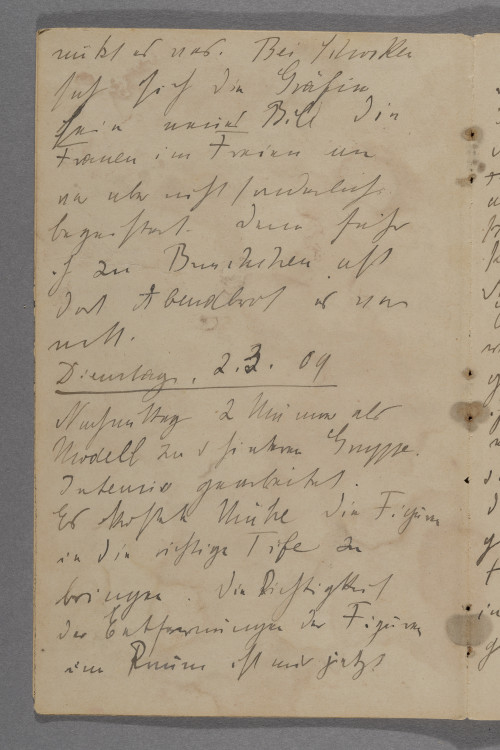 es war. Bei
sah sich die Gräfin
Bild die
Frauen im Freien an
war aber nicht sonderlich
begeistert. Dann fuhr
ich zu aß
dort Abendbrot es war
nett.
Dienstag. 2.3.09
Nachmittag 2 Männer als
Modell zu d hinteren Gruppe.
Intensiv gearbeitet.
Es kostet Mühe die Figuren
in die richtige Tife zu
bringen. Die Richtigkeit
der Entfernungen der Figuren
im Raum ist mir jetzt